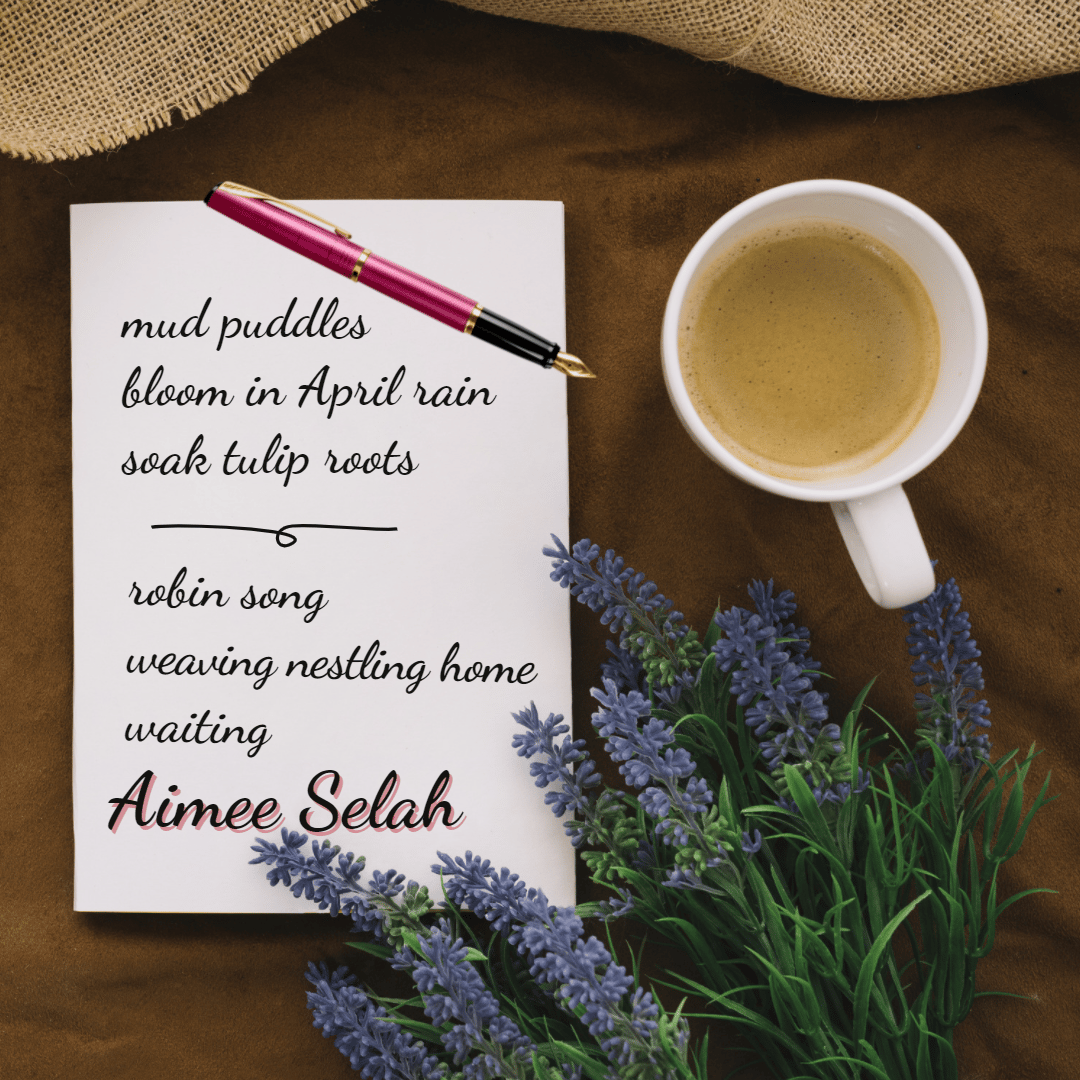 mud puddles
bloom in April rain
soak tulip roots
robin song
weaving nestling home
waiting
Aimee Selah